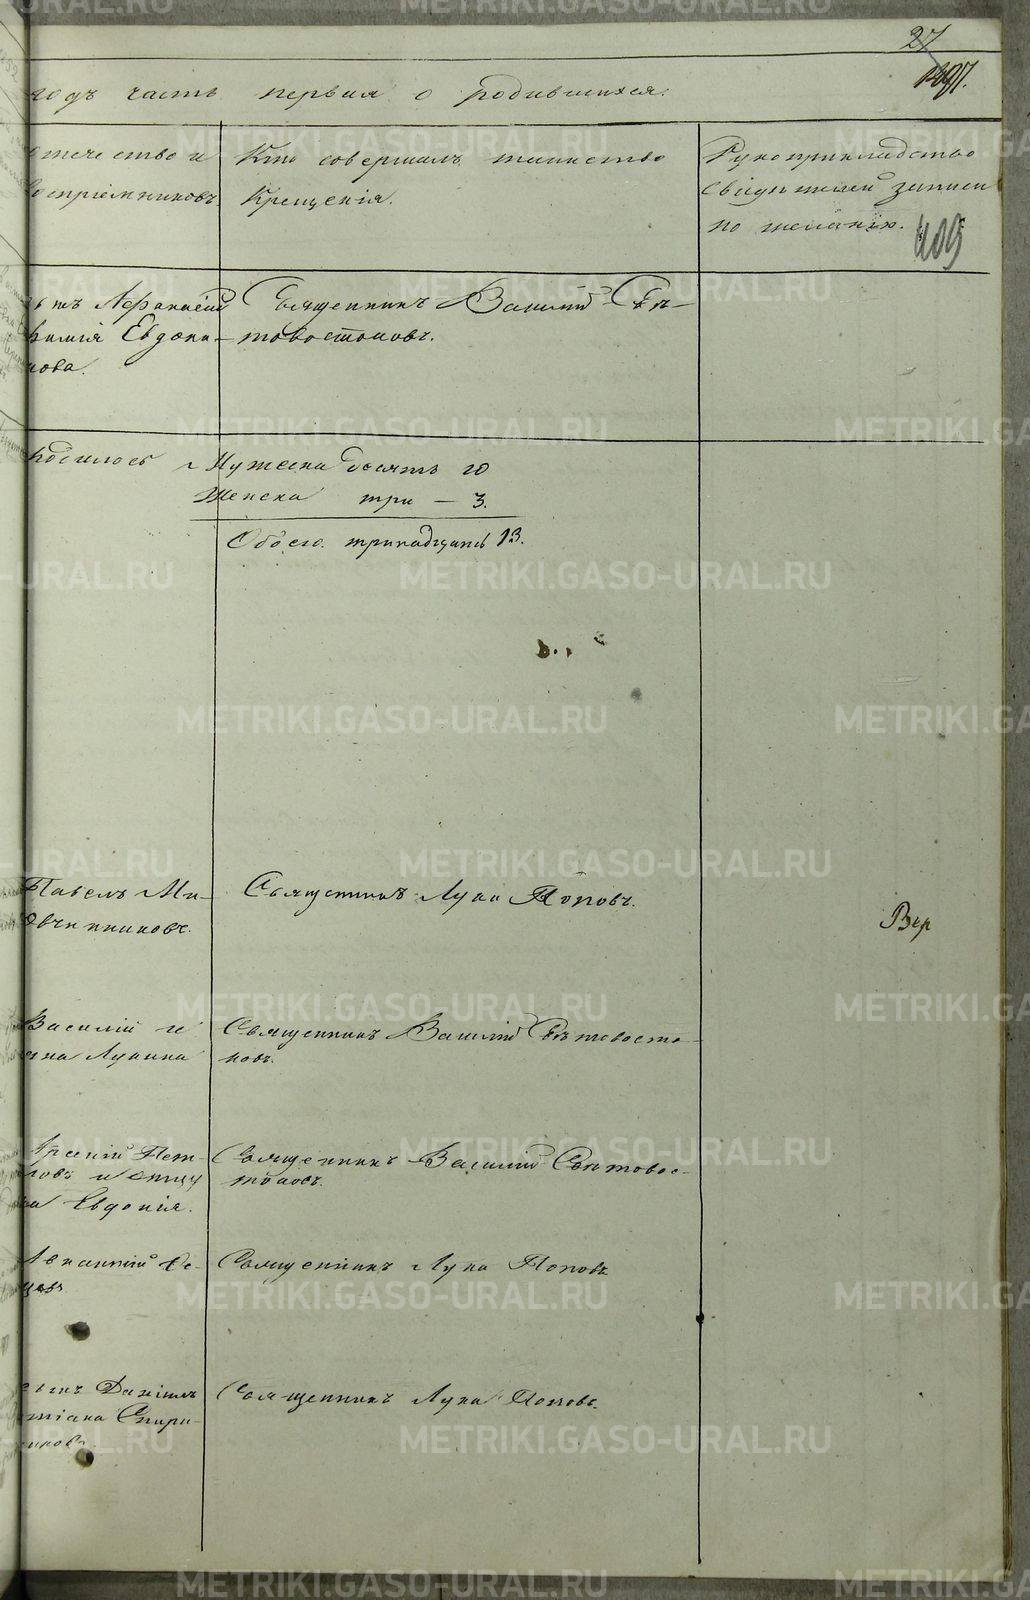 27
годъ часть первая о родившихся.
отечество и
воспріемниковъ.
Кто совершалъ таинство
Крещенія.
Рукоприкладство
свидѣтелей записи
по желанію.
409
Аѳанасій
Евдоки-
мова.
Священникъ Василій Свѣ-
товостоковъ.
родилось
Мужеска десять 10
Женска три — 3.
Обоего тринадцать 13.
Павелъ Ми-
Овчинниковъ.
Священникъ Лука Поповъ.
Вер
Василій и
Лукина
Священникъ Василій Свѣтовосто-
ковъ.
Арсеній Пет-
ровъ и
Евдокія.
Священникъ Василій Свѣтовос-
токовъ.
Священникъ Лука Поповъ
сынъ Даніилъ
Спири-
Священникъ Лука Поповъ.
METRIKI.GASO-URAL.RU